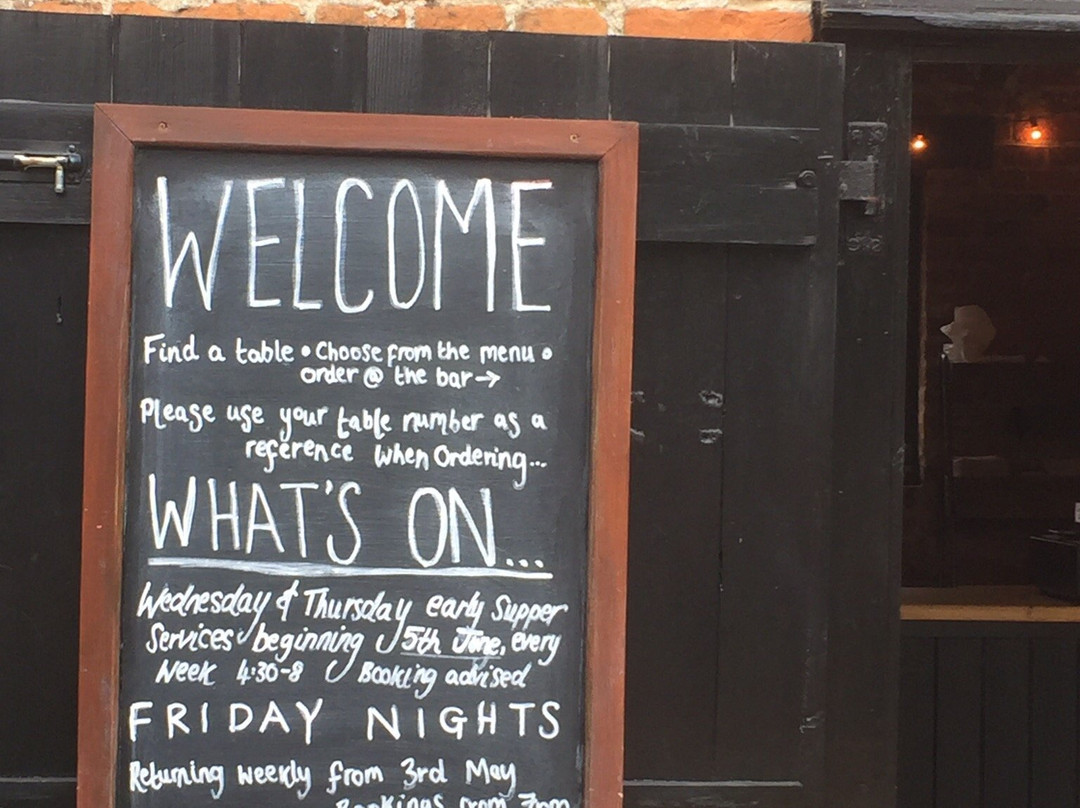 WELCOME
Find a table • Choose from the menu •
order @ the bar →
Please use your table number as a
reference when Ordering...
WHAT'S ON...
Wednesday & Thursday early Supper
Services beginning 5th June, every
Week 4:30-8 Booking advised
FRIDAY NIGHTS
Returning weekly from 3rd May
Bookings from 7pm